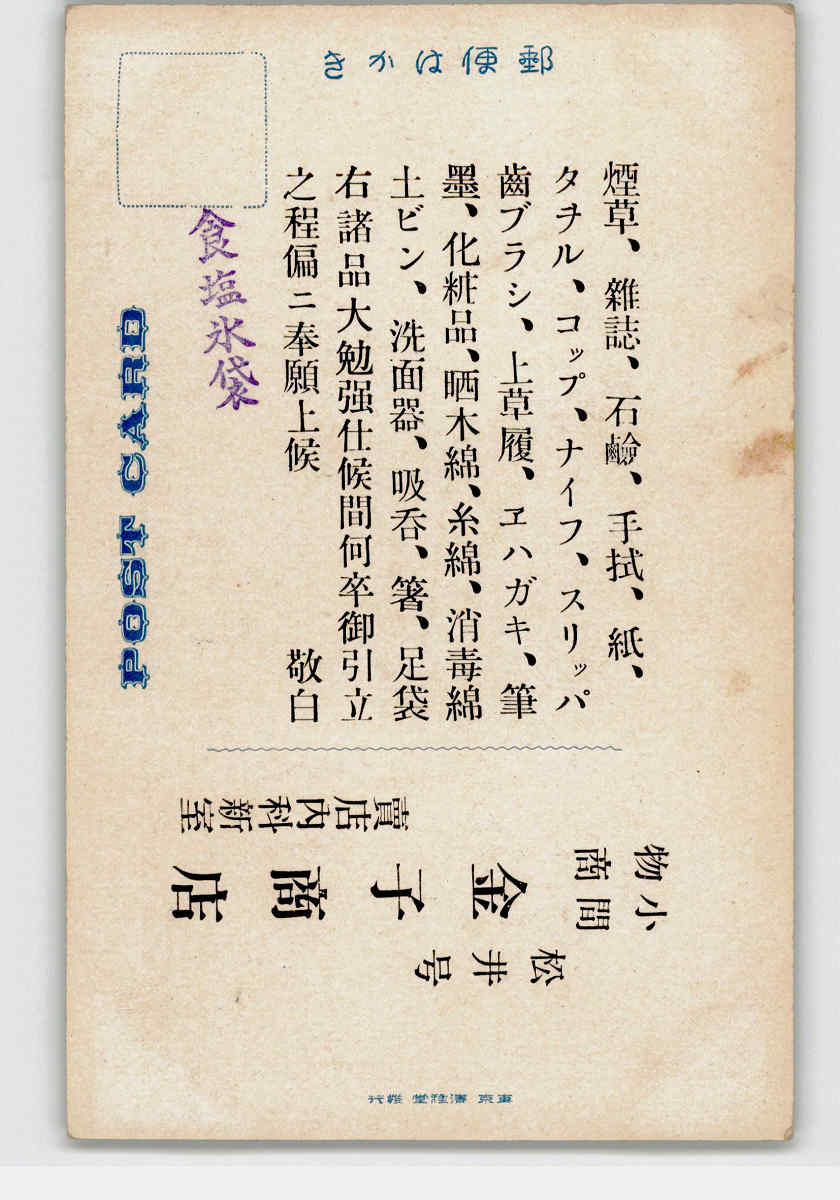 郵便はかき
煙草、雜誌、石鹼、手拭、紙、
タヲル、コップ、ナイフ、スリッパ
齒ブラシ、上草履、ヱハガキ、筆
墨、化粧品、晒木綿、糸綿、消毒綿
土ビン、洗面器、吸呑、箸、足袋
右諸品大勉强仕候間何卒御引立
之程偏ニ奉願上候 敬白
食塩氷袋
POST CARD
小間物商
松井号
金子商店
賣店内科新室
東京